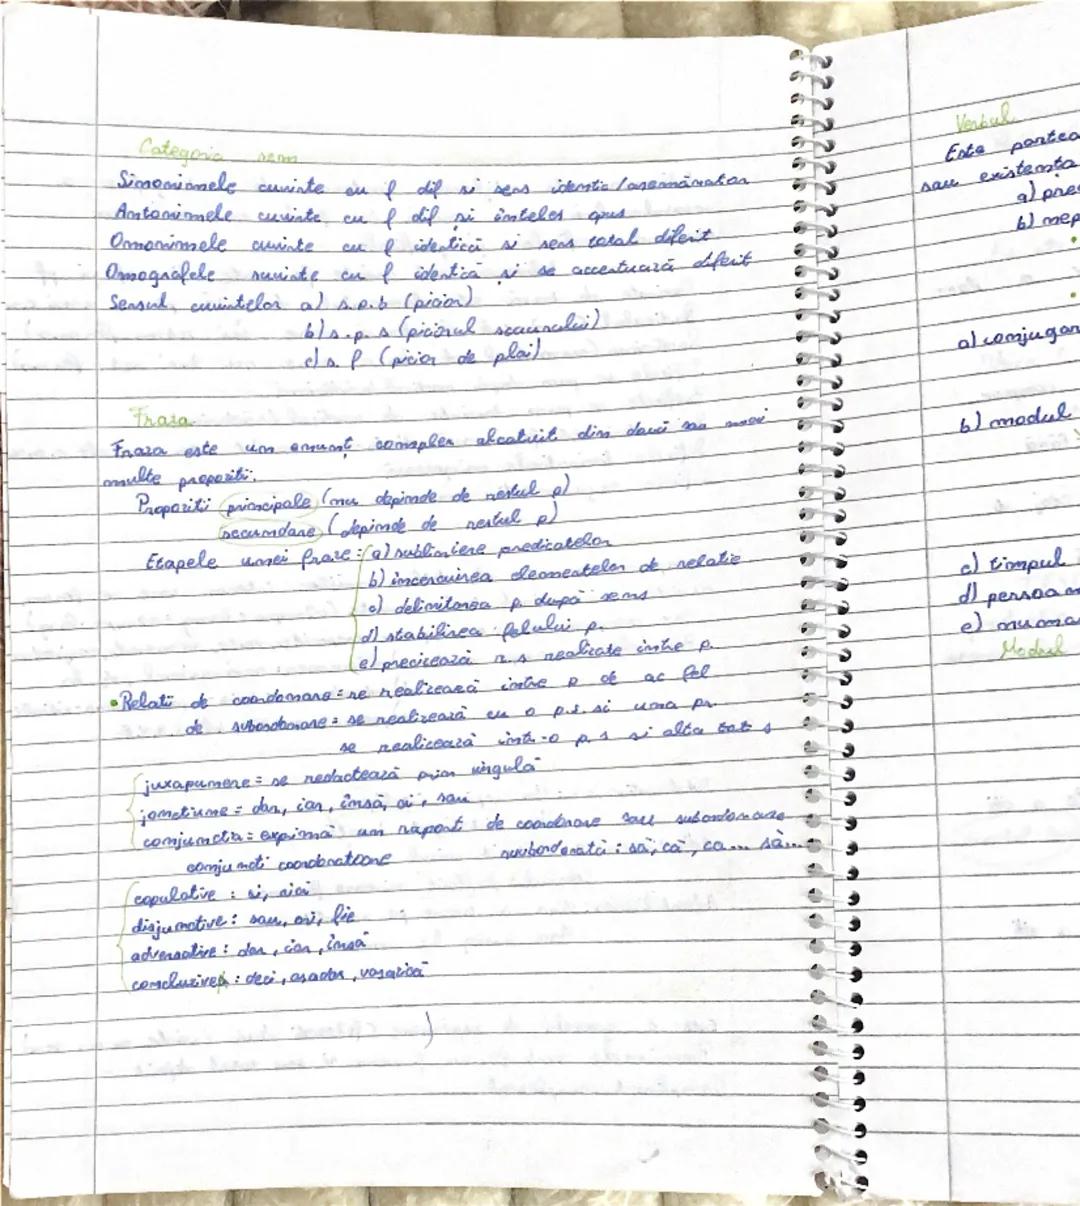 Categoria sem
Sinonimele cuvinte cu f dif si sens identic/asemănător
Antonimele cuvinte cu f dif si inteles opus
Omonimele cuvinte cu f identică si sens total diferit
Omografele cuvinte cu f identică si se accentuază diferit
Sensul cuvintelor a) s.p.b (picior)
b) s.p.s (piciorul scaunului)
c) s.f (picior de plai)
Fraza
Fraza este un enunt complex alcatuit din două sau mai
multe propoziti.
Propozitii principale (nu depinde de restul p)
secundare (depinde de restul p)
Etapele unei fraze: a) subliniere predicatelor
b) incercuirea elementelor de relatie
c) delimitarea p. după sens
d) stabilirea felului p.
e) precizează r.s realizate intre p.
• Relatii de coordonare = se realizează intre p de ac fel
de subordonare = se realizează cu o p.s. si una pr.
se realizează intr-o p s si alta tot s
juxapunere = se redactează prin virgulă
joncțiune = dar, iar, însă, ci, sau
conjunctia = exprimă un raport de coordonare sau subordonare
conjuncti coordonatoare subordonată: să, că, ca... să...
copulative : si, nici
disjunctive : sau, ori, fie
adversative : dar, iar, însă
concluzive : deci, asadar, vasazică
Verbul
Este partea
sau existenta
a) pre
b) nep
a) conjugar
b) modul
c) timpul
d) persoan
e) numa
Modul